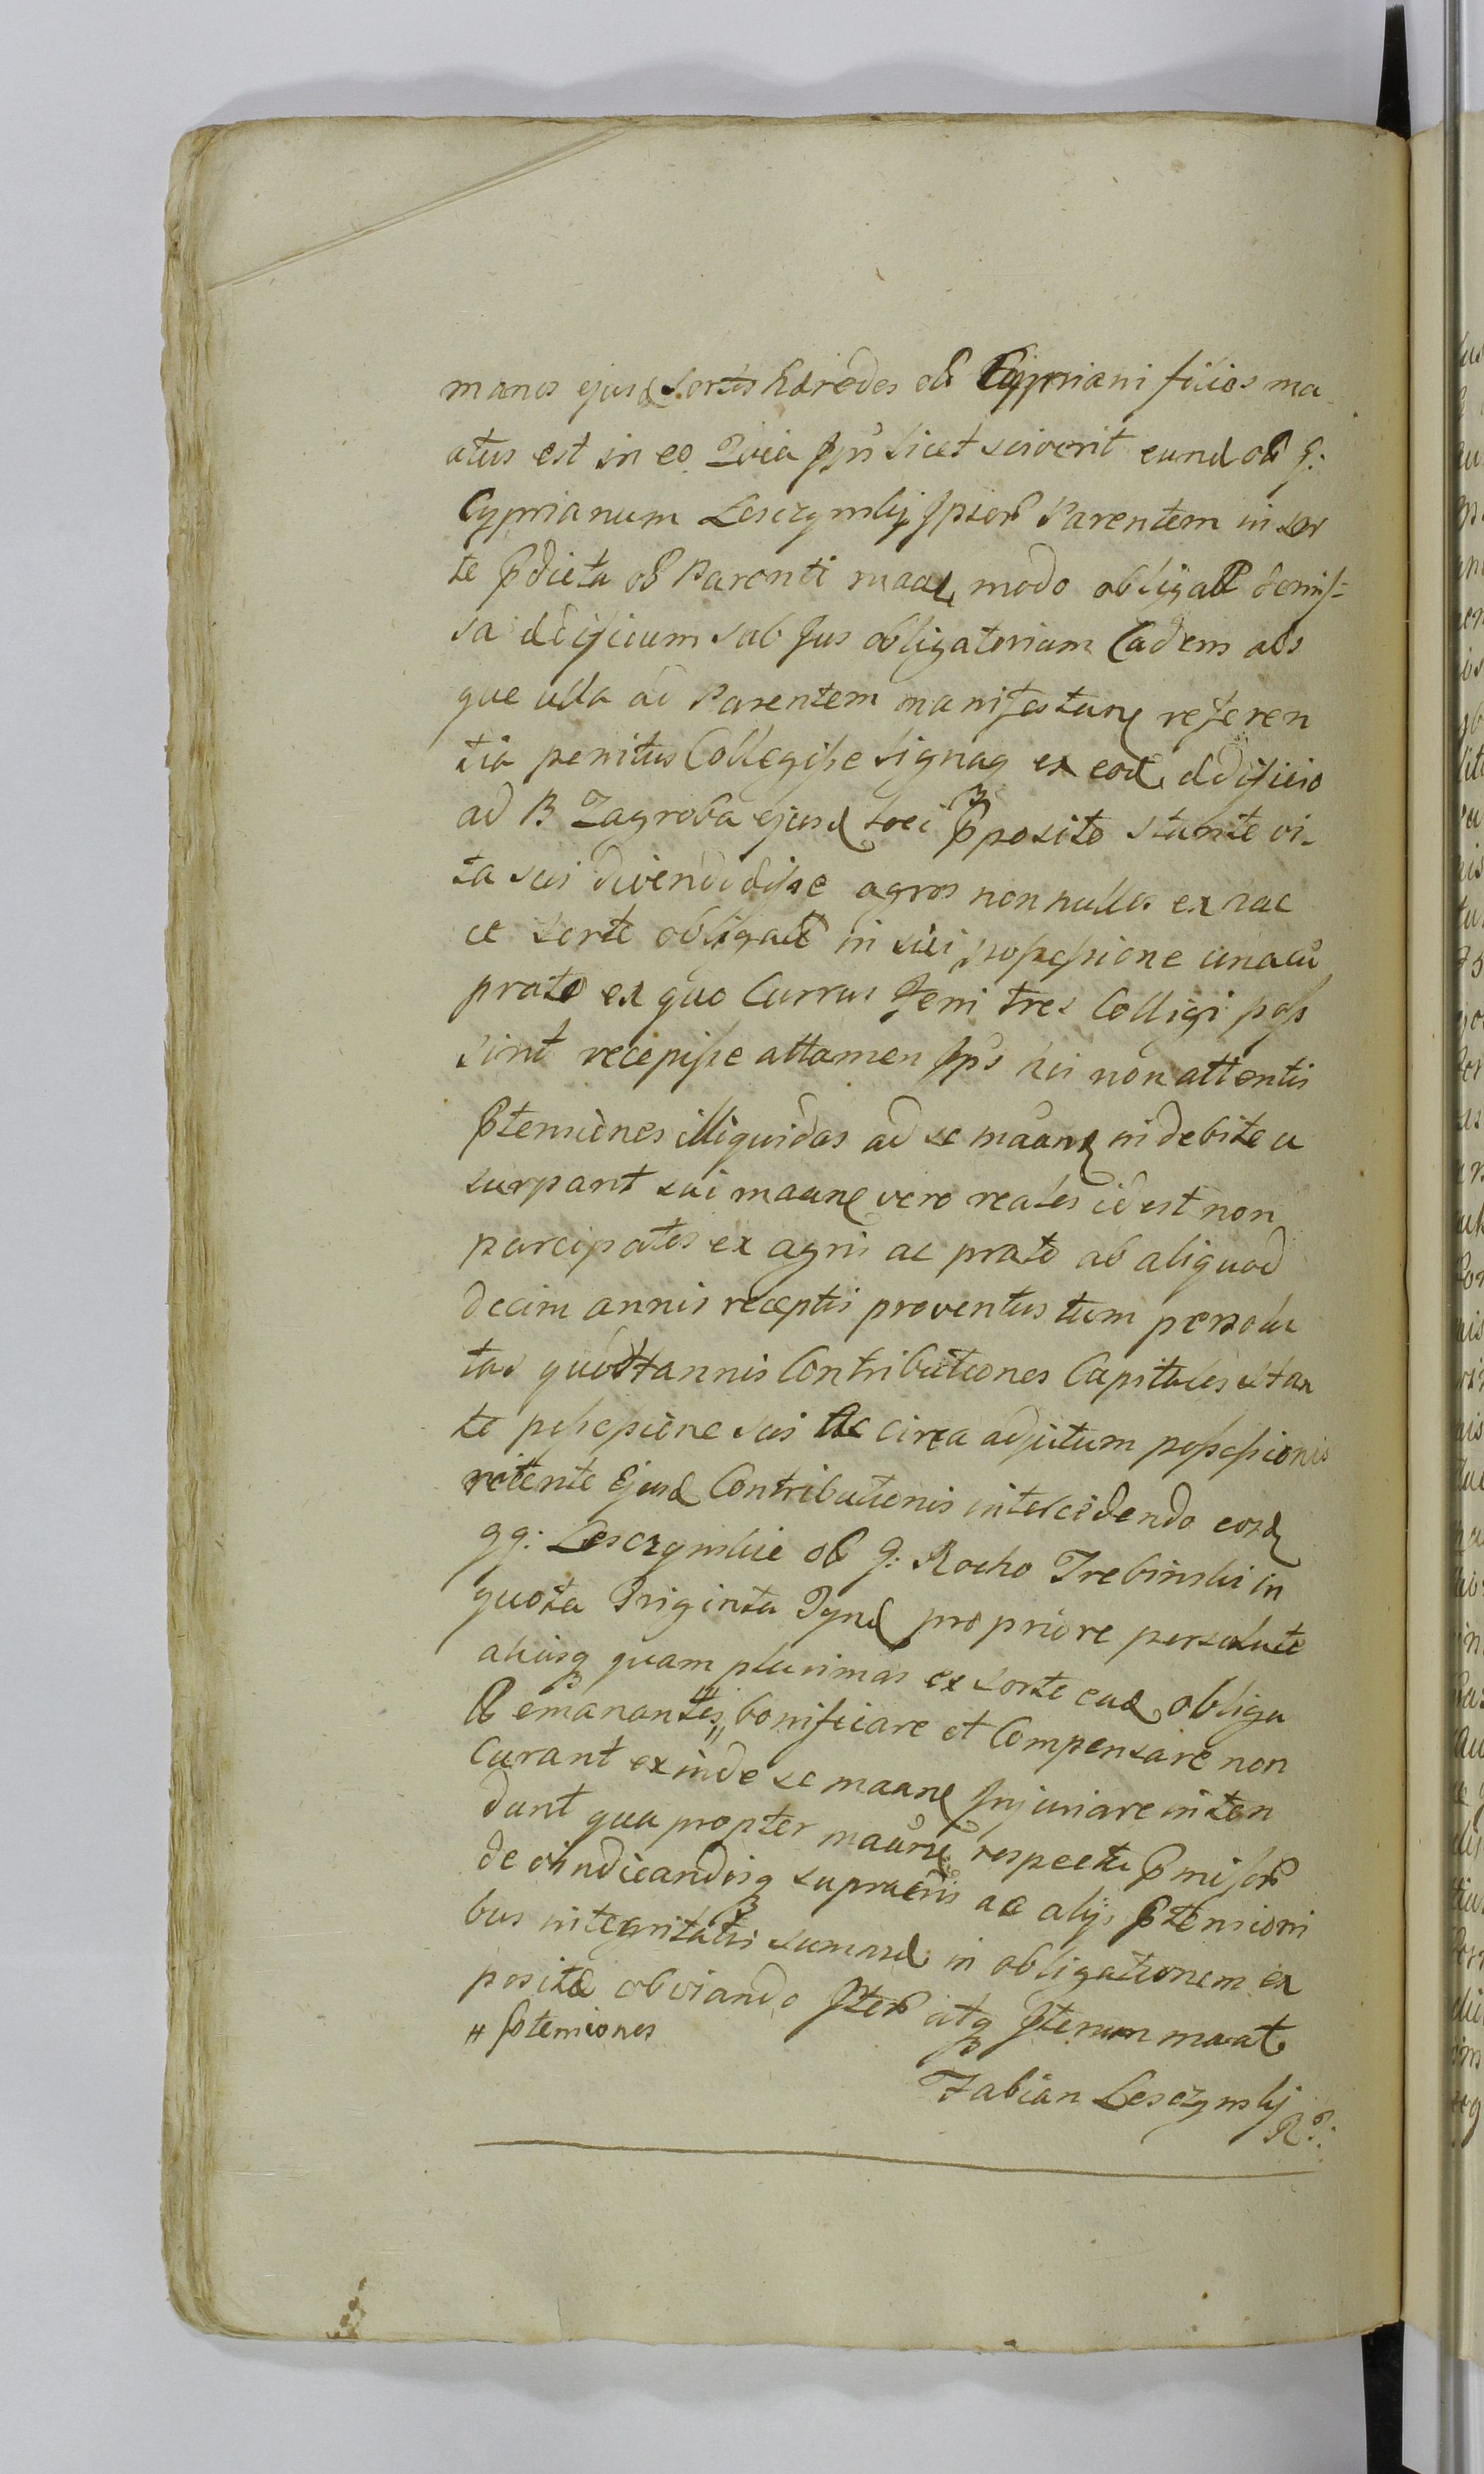 manos ejusd sortis Hæredes olī Cypriani filios ma
atus est in eo Quia Ipsi licet sciverit eund olī G:
Cyprianum Lesczynskij Ipsor Parentem in sor
te pdicta olī Parenti maan modo obligat dimis-
sa ædificium sub Jus obligatorium Cadens abs
que ulla ad Parentem manifestane referen
tia penitus Collegisse lignaq ex eod ædificio
ad B Zagroba ejusd loci pposito stante vi
ta sui divendidisse agros non nullos ex hac
ce sorte obligat in sui possessione unacū
prato ex quo Currus feni tres Colligi pos
sint recepisse attamen Ipsi his non attentis
ptensiones illiquidas ad se maane indebite u
surpant sui maane vero reales id est non
parcipatos ex agris ac prato ab aliquod
decim annis receptis proventus tum persolu
tas quottannis Contributiones Capitales stan
te possessione sui Ac circa aditum possessionis
ritente Ejusd Contributionis intercidendo eosd
gg: Lesczynskie ob G: Rocho Trebinski in
quota Triginta Tynf proprio re persolute
aliasq quam plurimas ex sorte ead obliga
ta emanantes bonificare et Compensare non
Curant exinde se maane Injuriare inten
dunt qua propter maane respectu pmisor
de vindicandisq supra enis ac alijs ptensioni
bus integritatis summæ in obligationem ex
positæ obviando Iter atq Iterum maat
# ptensiones
Fabian Lesczynskij